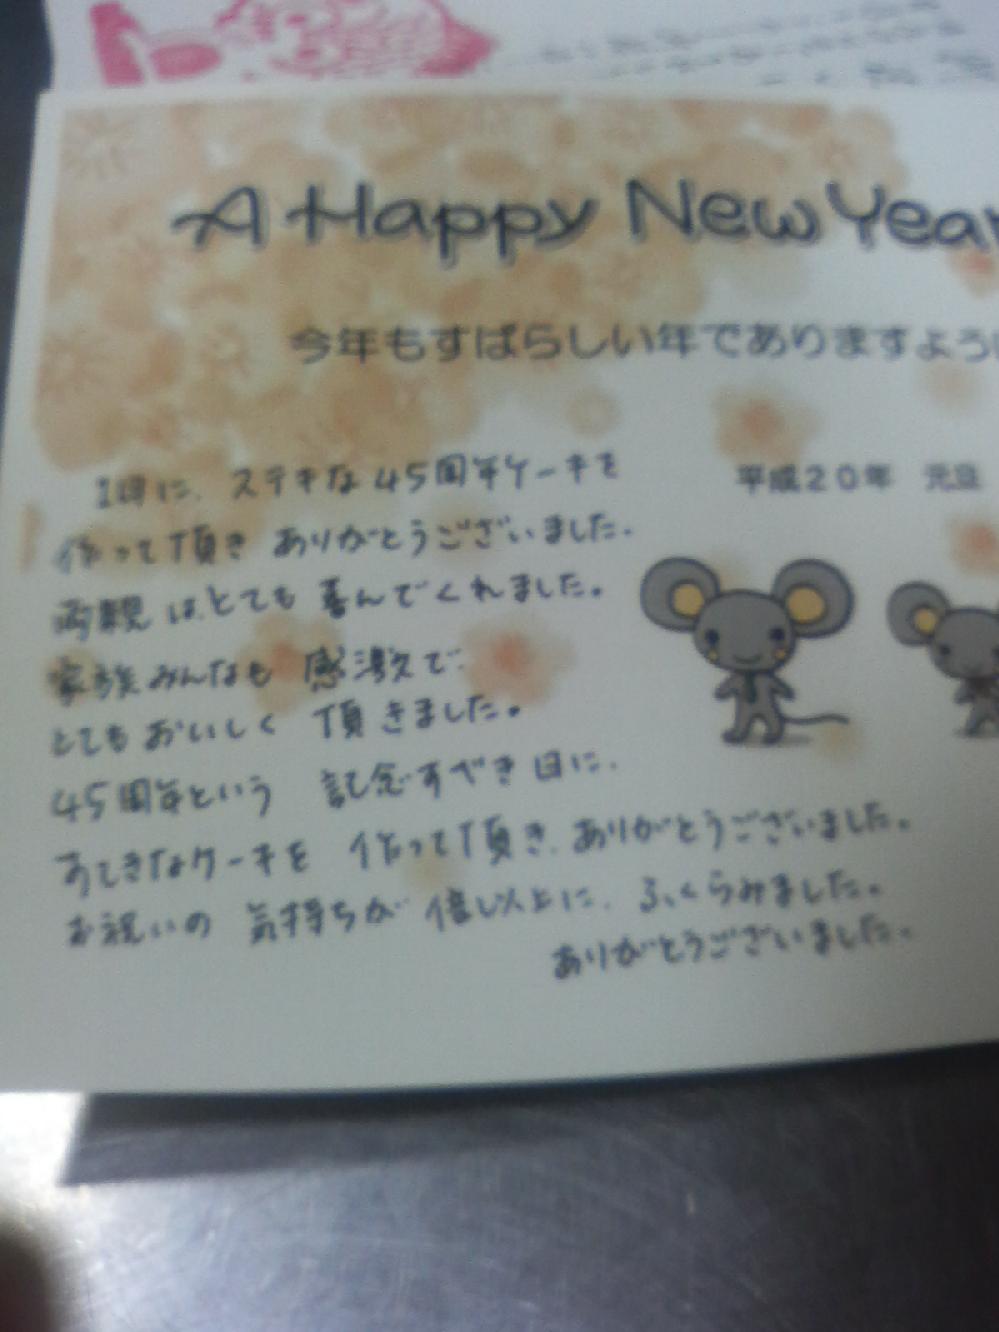 A Happy New Year
今年もすばらしい年でありますように
平成20年 元旦
に、ステキな45周年ケーキを
作って頂き ありがとうございました。
両親は、とても喜んでくれました。
家族みんなも 感激で
とてもおいしく 頂きました。
45周年という 記念すべき日に、
すてきなケーキを 作って頂き、ありがとうございました。
お祝いの 気持ちが 倍以上に、ふくらみました。
ありがとうございました。